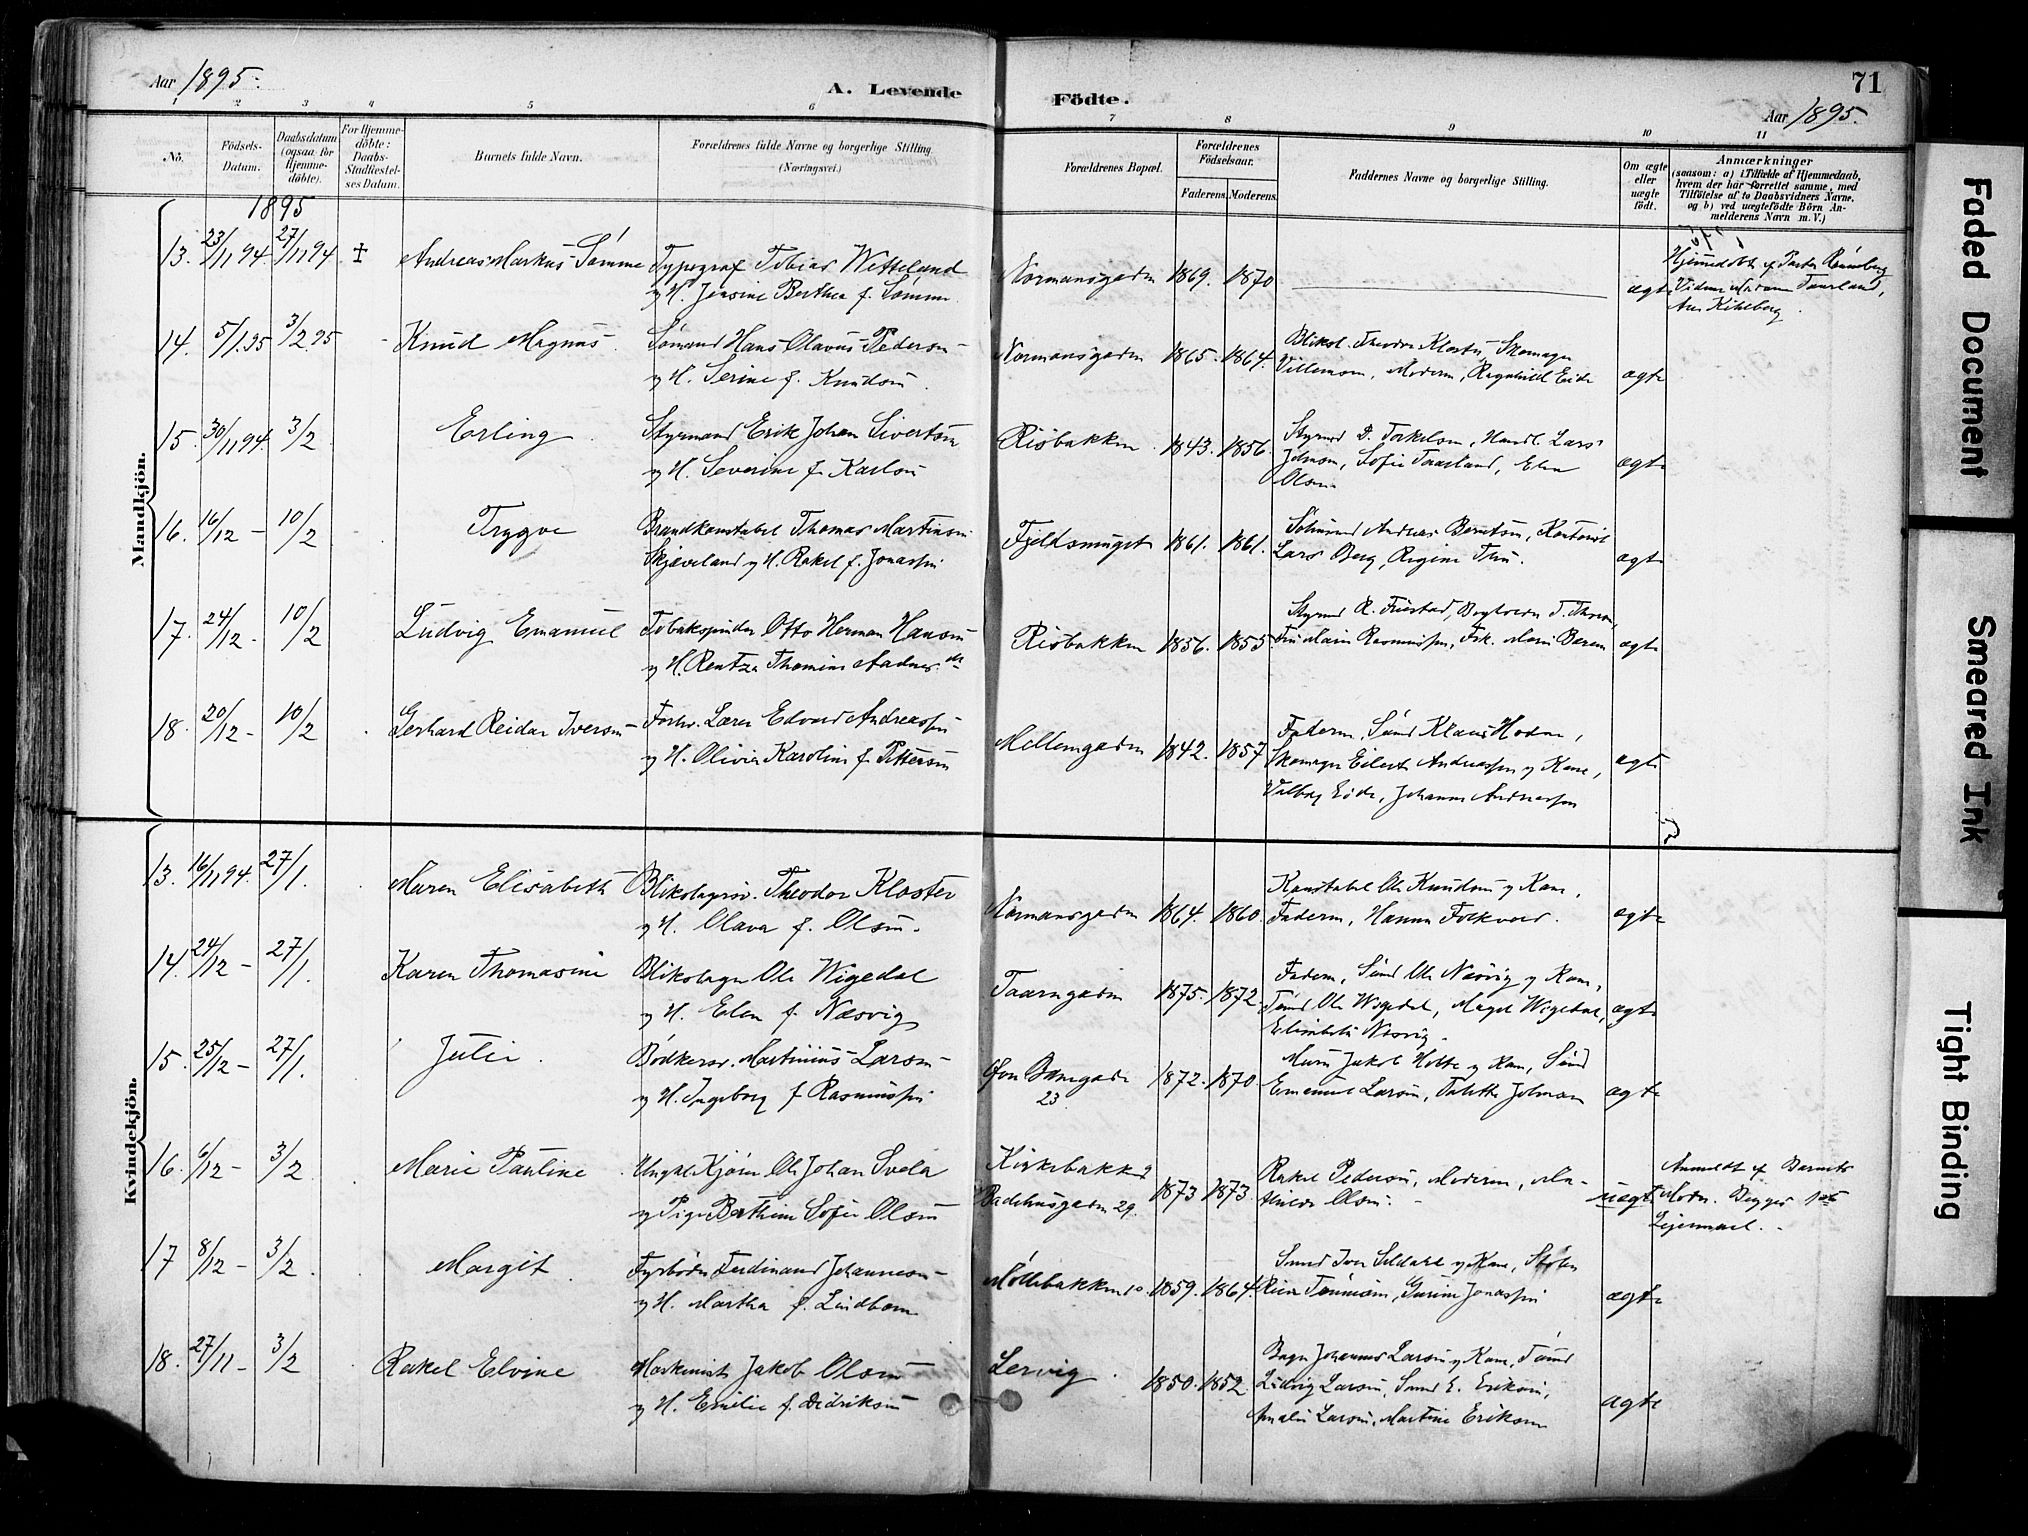 Aar 1895.
A. Levende Födte.
71
Aar 1895.
1 2 3 4 5 6 7 8 9 10 11
No.
Födsels-Datum.
Daabsdatum (ogsaa for Hjemme-döbte).
For Hjemme-döbte: Daabs-Stadfæstel-ses Datum.
Barnets fulde Navn.
Forældrenes fulde Navne og borgerlige Stilling. (Næringsvei.)
Forældrenes Bopæl.
Forældrenes Födselsaar.
Faderens. Moderens.
Faddernes Navne og borgerlige Stilling.
Om ægte eller uægte födt.
Anmærkninger
(saasom: a) i Tilfælde af Hjemmedaab,
hvem der har forrettet samme, med
Tilföielse af to Daabsvidners Navne,
og b) ved uægtefödte Börn An-
melderens Navn m. V.)
Mandkjön.
1895
13. 23/11 94. 27/11 94 Andreas Markus Sømme Typograf Tobias Wetteland
y H. Jensine Berthea f. Sømme.
Normansgaden 1869. 1870 ægte
Hjemmedøbt af
14. 5/1 95 3/2 95 Knud Magnus. Sømand Hans Olavus Pedersen
y H. Serine f. Knudsen.
Normansgaden 1865. 1864. Theodor Kloster, Skomager
Villumsen, Moderen, Ragnhild Eide ægte
15. 30/11 94. 3/2 Erling. Styrmand Erik Johan Sivertsen
y H. Severine f. Karlsen
Risbakken 1843. 1856. Styrmd D. Torkelsen, Handl. Lars
Johnsen, Sofie Taarland, Elen
Olsen. ægte
16. 16/12 - 10/2 Trygve Brandkonstabel Thomas Martinsen
Skjæveland y H. Rakel f. Jonassen
Fjeldsmuget 1861. 1861. Andreas Berntsen,
Lars Berg, Regine ægte
17. 24/12 - 10/2 Ludvig Emanuel Tobakspinder Otto Herman Hansen
y H. Rentza Thomine Aadnes. dr
Risbakken 1856. 1855. ægte
18. 20/12 - 10/2 Gerhard Reidar Iversen Lærer Edvard Andreassen
y H. Olivia Karoline f. Pettersen
Mellemgaden 1842. 1857 Faderen, Klaus
Skomager Eilert Andreassen y Kone,
Valborg Eide, Johanne Andreassen ægte
Kvindekjön.
13. 16/11 94. 27/1. Maren Elisabeth Blikslagersv. Theodor Kloster
y H. Olava f. Olsen.
Normansgaden 1864. 1860. Konstabel Ole Knudsen y Kone,
Faderen, Hanna Folkvord. ægte
14. 24/12 - 27/1. Karen Thomasine Blikslager Ole Wigedal
y H. Elen f. Næsvig
Taarngaden 1875. 1872. Faderen, Ole Næsvig y Kone,
Ole Wigedal, Wigedal,
Elisabeth Næsvig. ægte
15. 25/12 - 27/1. Julie. Bødkersv. Martinius Larsen
y H. Ingeborg f Rasmussen
23 1872. 1870. Jakob Holte y Kone,
Emanuel Larsen, Johnsen ægte
16. 6/12 - 3/2 Marie Pauline Ungkl. Kjøbm Ole Johan Svela
y Pige Berthine Sofie Olsen
Kirkebakk 9
Badehusgaden 29. 1873 1873. Rakel Pedersen, Moderen, Ma-
thilde Olsen. uægte
Anmeldt af Barnets
Moder. Begges 1ste
Leiermaal.
17 8/12 - 3/2. Margit. Fyrbøder Ferdinand Johannesen
y H. Martha f. Lindbom
Møllebakken 10. 1859. 1864. Iver y Kone,
Gurine Jonassen ægte
18. 27/11 - 3/2 Rakel Elvine Maskinist Jakob Olsen
y H. Emilie f. Didriksen
Lervig. 1850. 1852. Johannes Larsen y Kone,
Ludvig Larsen, E. Eriksen,
Amalie Larsen, Martine Eriksen ægte
Faded Document
Smeared Ink
Tight Binding